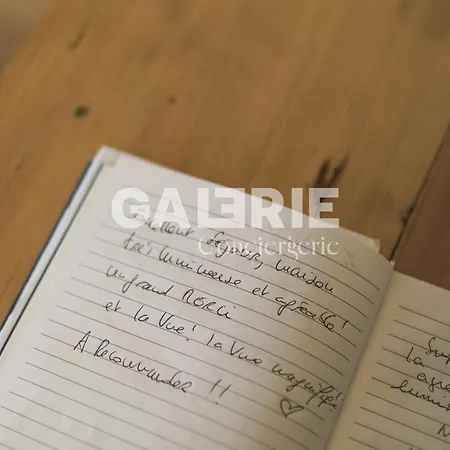 GALERIE
Conciergerie
Excellent séjour, maison
très lumineuse et agréable!
un grand MERCI
et la Vue! la Vue magnifique!
A Recommander !!
Sup
la
agré
lumi